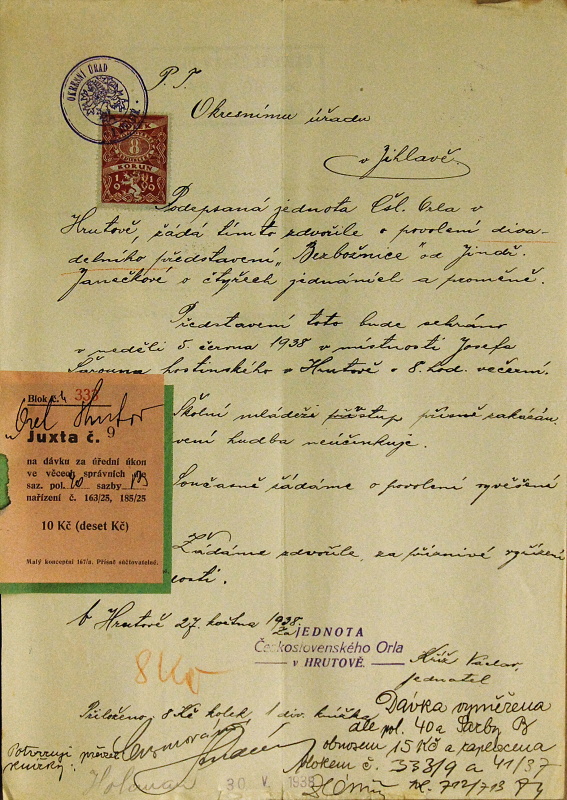 OKRESNÍ ÚŘAD
P. T.
Okresnímu úřadu
v Jihlavě.
8
KORUN
1 9 1 9
Podepsaná jednota Čsl. Orla v
Hrutově, žádá tímto zdvořile o povolení diva-
delního představení „Bezbožnice" od Jindř.
Janečkové o čtyřech jednáních a proměně.
Představení toto bude sehráno
v neděli 5. června 1938 v místnosti Josefa
hostinského v Hrutově o 8. hod. večerní.
Školní mládeži přístup přísně zakázán,
vení hudba neúčinkuje.
Současně žádáme o povolení vyvěšení
Žádáme zdvořile, za příznivé vyřízení
osti.
Blok č. 333
Orel Hrutov
Juxta č. 9
na dávku za úřední úkon
ve věcech správních dle
saz. pol. 40 sazby
nařízení č. 163/25, 185/25
10 Kč (deset Kč)
Malý konceptní 167/a. Přísně súčtovatelné.
V Hrutově 27. května 1938.
Za JEDNOTA
Československého Orla
v HRUTOVĚ.
Kříž Václav,
jednatel
8 Kč
Přiloženo: 8 Kč kolek, 1 div. knížka
Dávka vyměřena
dle pol. 40a Sazby B
obnosem 15 Kč a zaplacena
blokem č. 333/9 a 41/37
712/713
Potvrzuji
30 V. 1938